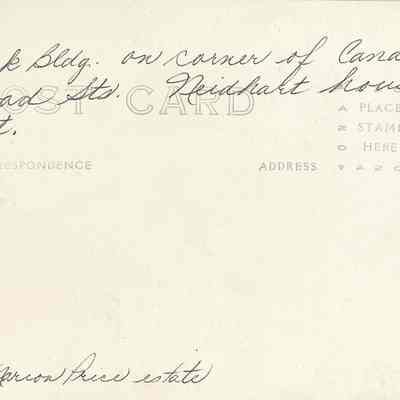 k Bldg. on corner of Cana
oad Sts. Neidhart hous
t.
OST CARD
RESPONDENCE
ADDRESS
A PLACE
Z STAMP
O HERE
Y A Z O
Marion Price estate